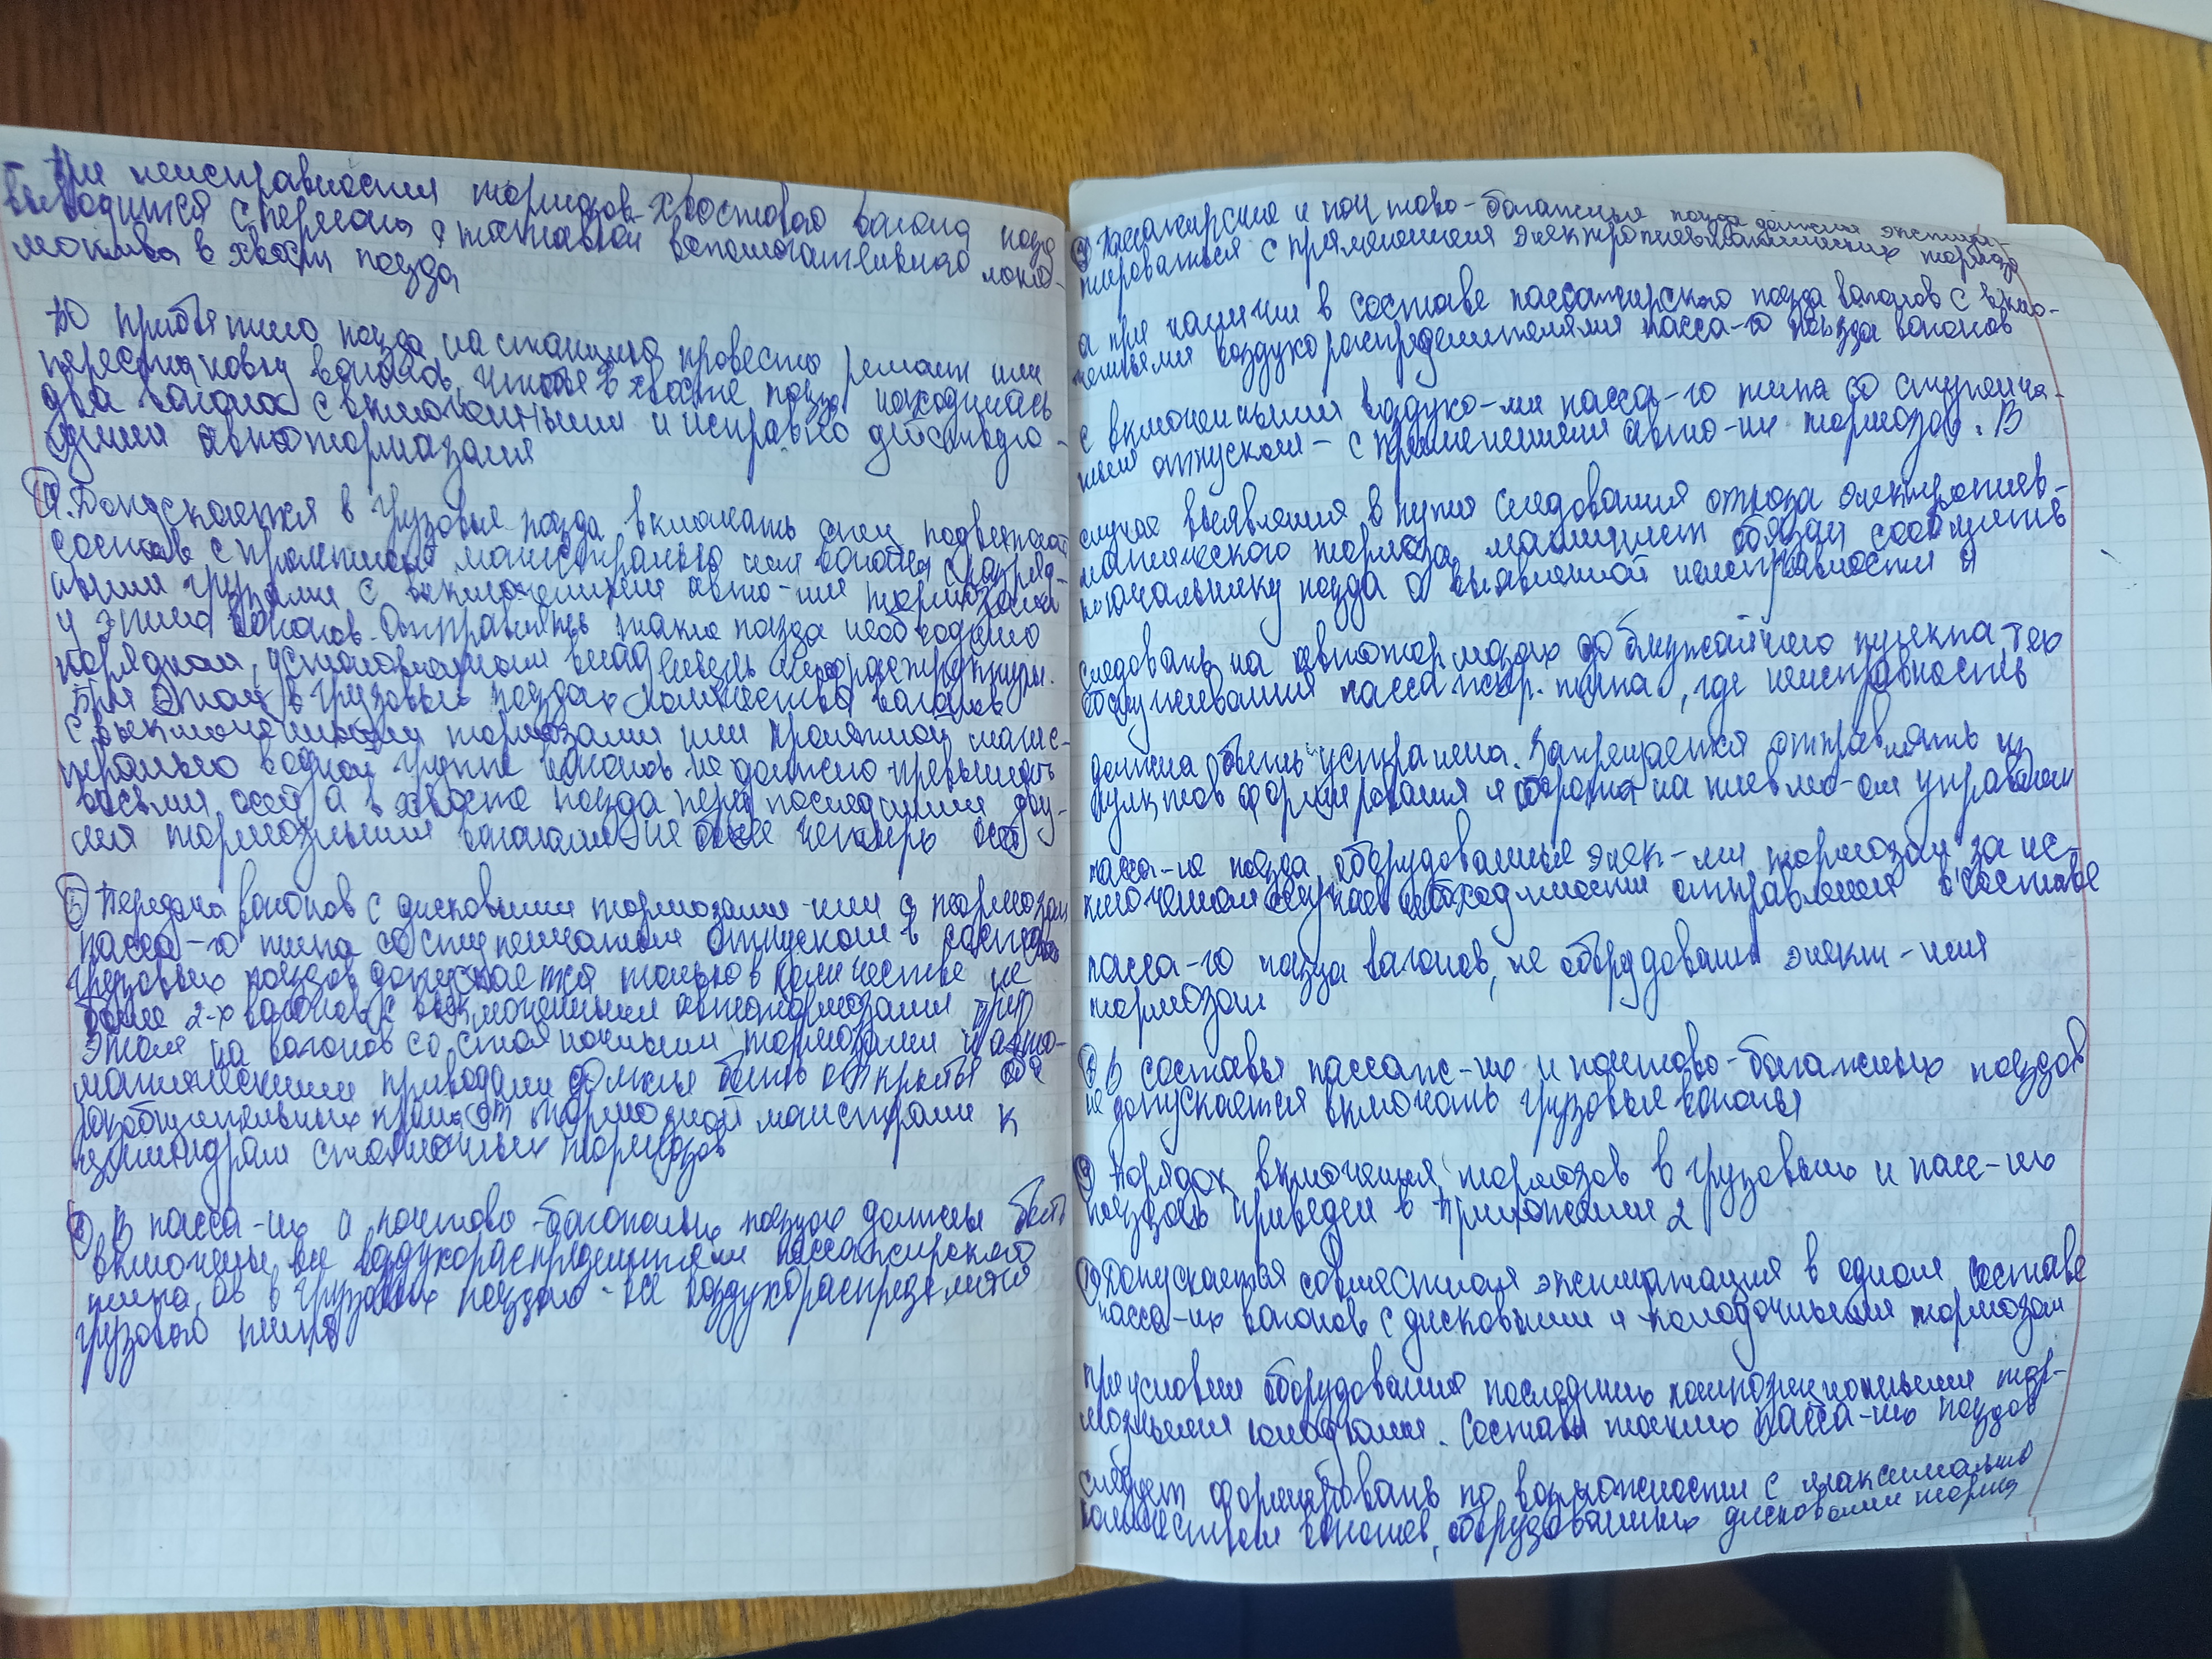 При неисправности тормозов хвостового вагона поезд
выводится с перегона с постановкой вспомогательного локо-
мотива в хвост поезда
По прибытию поезда на станцию провести ремонт или
перестановку вагонов, чтобы в хвосте поезда находилась
два вагона с включенными и исправно действую-
щими автотормозами
4. Допускается в грузовые поезда включать
состав с пролетной магистралью или вагоны с разряд-
ными грузами с выключенными авто-ми тормозами
у этих вагонов. Отправлять такие поезда необходимо
порядком, установленном владельцем инфраструктуры.
При этом в грузовых поездах количество вагонов
с выключенными тормозами или пролетной магис-
тралью в одной группе вагонов не должно превышать
восьми осей, а в хвосте поезда перед последними дву-
мя тормозными вагонами - не более четырёх осей
5 Передача вагонов с дисковыми тормозами или с тормозами
пасса-го типа со ступенчатым отпуском в составе
грузовых поездов допускается только в количестве не
более 2-х вагонов с выключенными автотормозами при
этом на вагонов со стояночными тормозами и авто-
матическими приводами должны быть открыты оба
разобщительных крана от тормозной магистрали к
цилиндрам стояночных тормозов
6 В пасса-их и почтово-багажных поездах должны быть
включены все воздухораспределители пассажирского
типа, а в грузовых поездах - все воздухораспределители
грузового типа
7 Пассажирские и почтово-багажные поезда должны эксплуа-
тироваться с применением электропневматических тормозов
а при наличии в составе пассажирского поезда вагонов с вклю-
ченными воздухораспределителями пасса-го поезда вагонов
с включенными воздухо-ми пасса-го типа со ступенча-
тым отпуском - с применением авто-их тормозов. В
случае выявления в пути следования отказа электропнев-
матического тормоза машинист обязан сообщить
начальнику поезда о выявленной неисправности и
следовать на автотормозах до ближайшего пункта тех
обслуживания пассажир. типа, где неисправность
должна быть устранена. Запрещается отправлять из
пунктов формирования и оборота на пневмо-ом управлении
пасса-ие поезда, оборудованные элек-ми тормозам за ис-
ключением случаев необходимости отправления в составе
пасса-го поезда вагонов, не оборудованы элект-ими
тормозам.
8 В составы пассаж-их и почтово-багажных поездов
не допускается включать грузовые вагоны
9 Порядок включения тормозов в грузовых и пасс-их
поездах приведен в приложении 2
10 Допускается совместная эксплуатация в одном составе
пасса-их вагонов с дисковыми и колодочными тормозам
при условии оборудования последних композиционными тор-
мозными колодками. Составы таких пасса-их поездов
следует формировать по возможности с максимально
количеством вагонов, оборудованных дисковыми тормоз